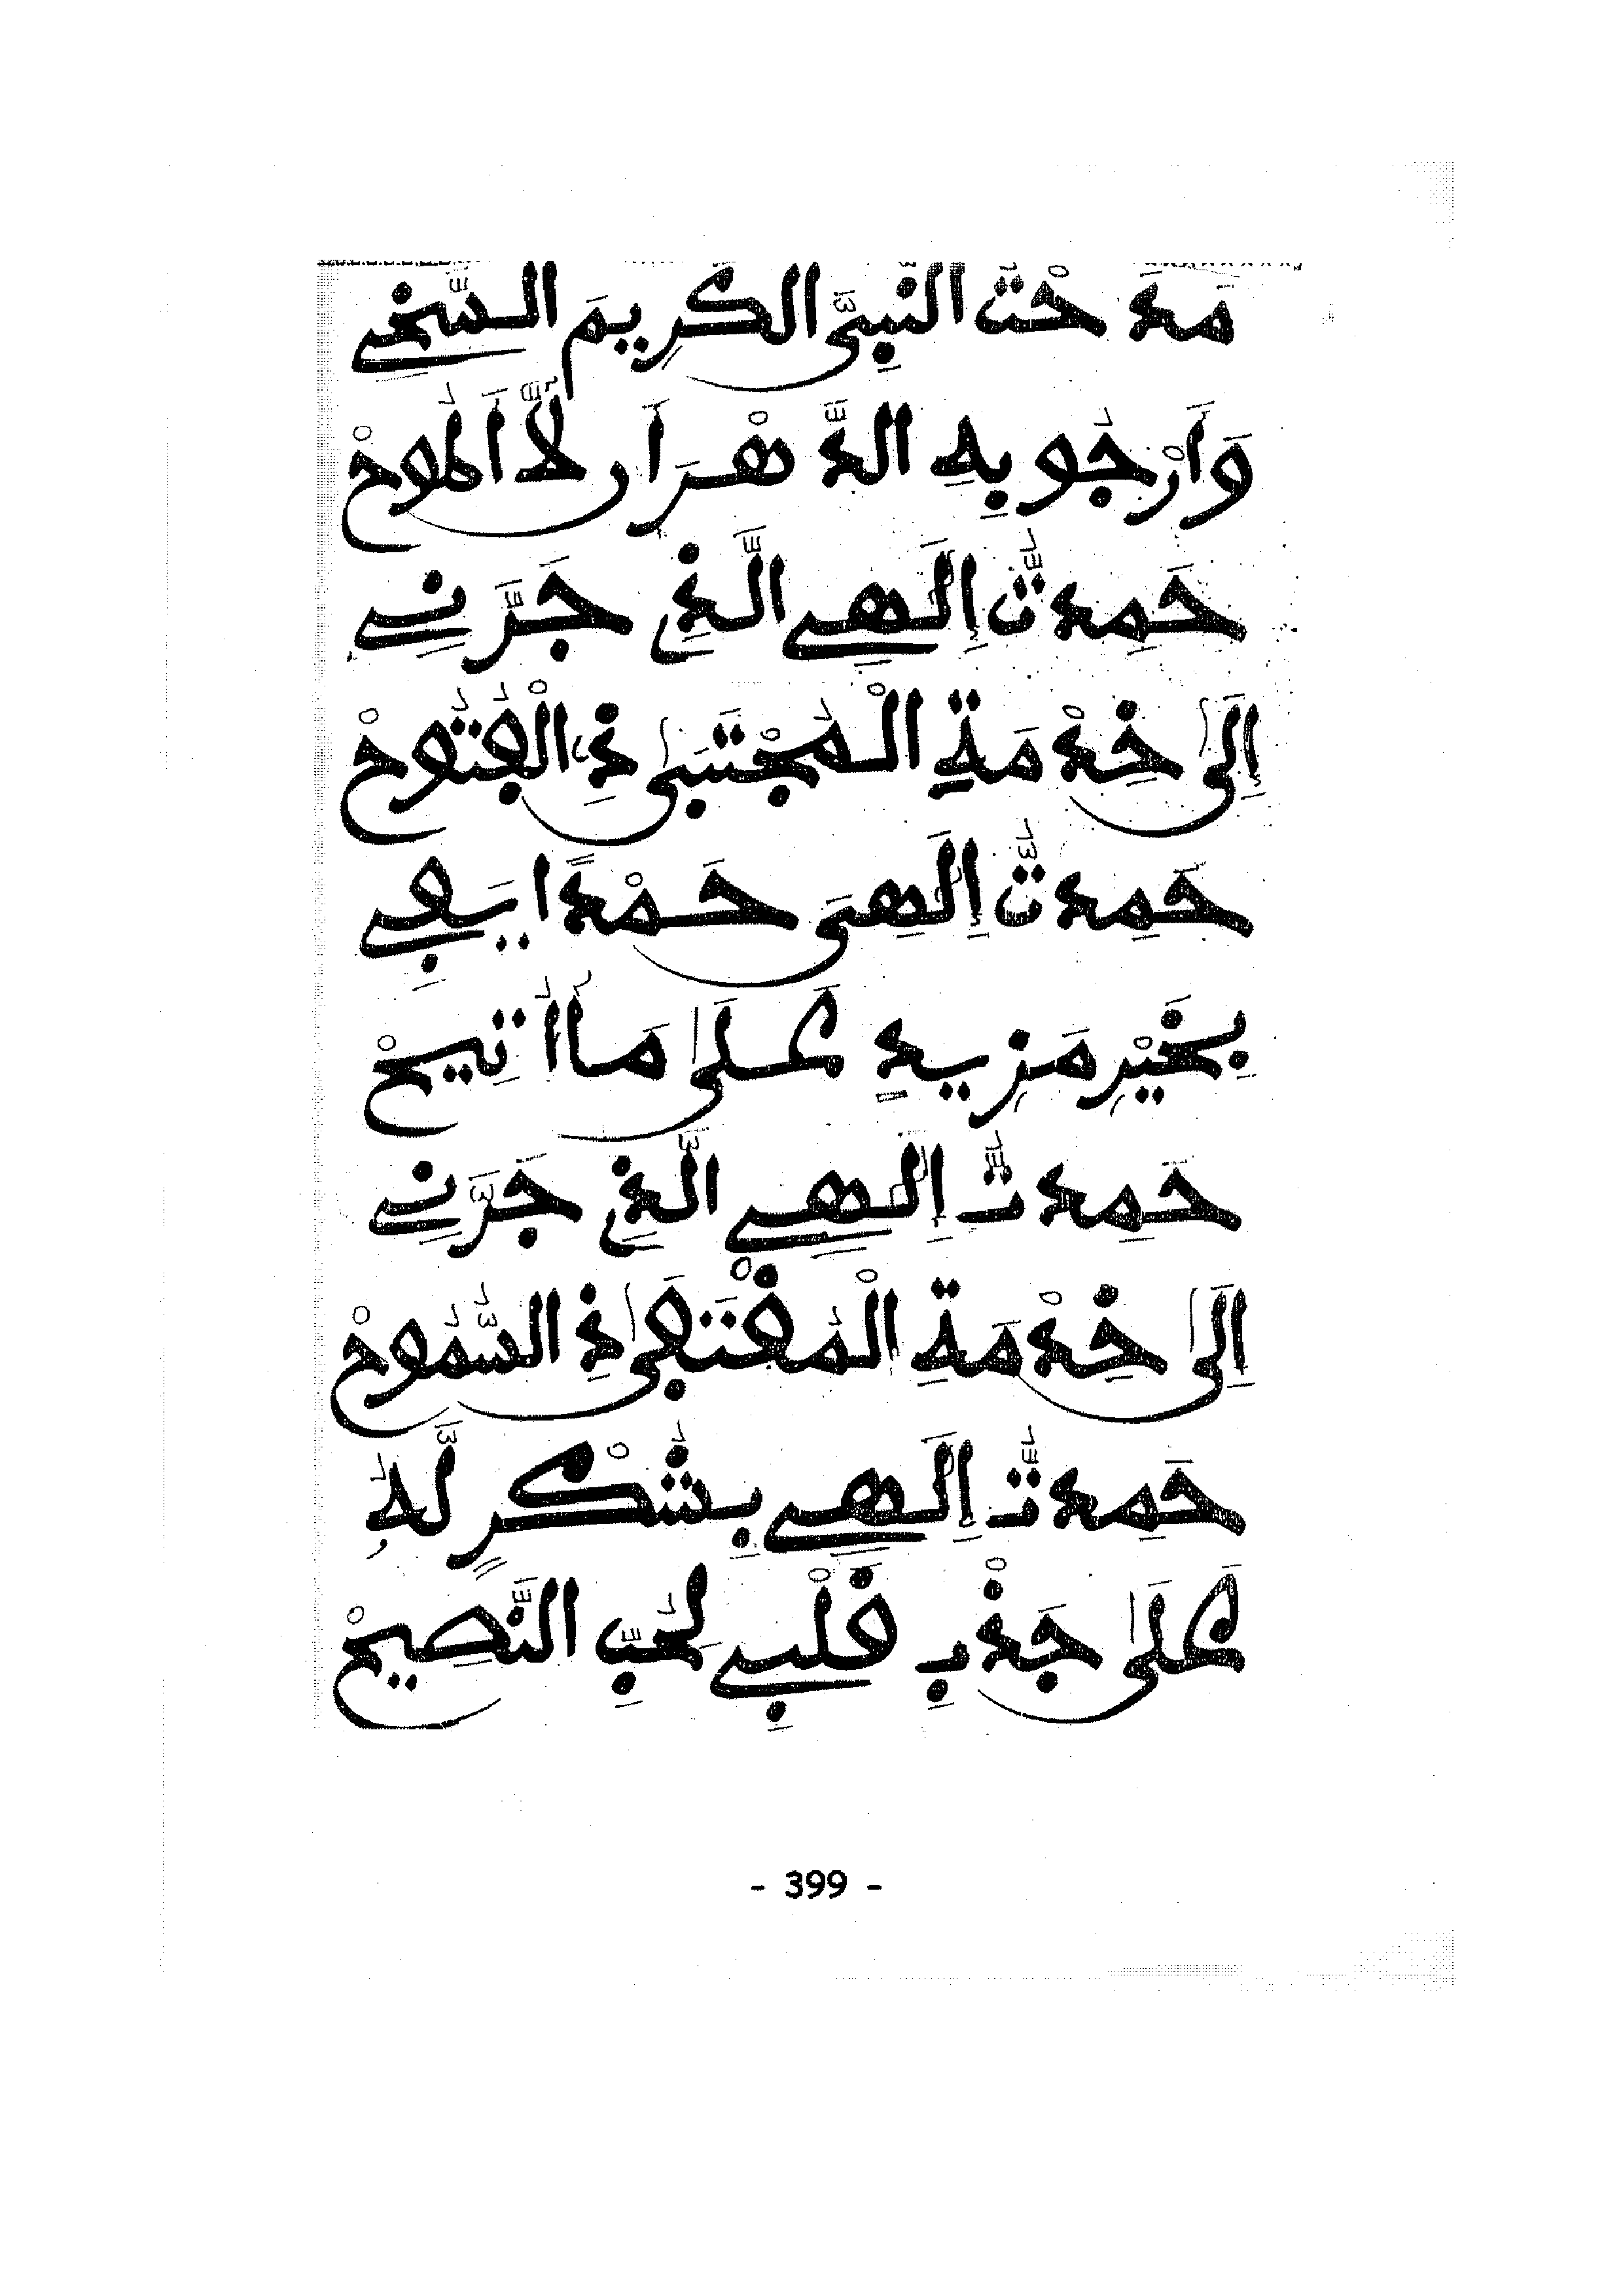 مَدَحْتُ النَّبِيَّ الْكَرِيمَ السَّخِي
وَأَرْجُو بِهِ الدَّهْرَ أَن لَّا أَلُوحْ
حَمِدتُّ إِلَٰهِي الَّذِي جَرَّنِي
إِلَىٰ خِدْمَةِ الْمُجْتَبَىٰ ذِي الْفُتُوحْ
حَمِدتُّ إِلَٰهِيَ حَمْدًا يَفِي
بِخَيْرٍ مَزِيدٍ عَلَىٰ مَا أُتِيحْ
حَمِدتُّ إِلَٰهِي الَّذِي جَرَّنِي
إِلَىٰ خِدْمَةِ الْمُقْتَفَىٰ ذِي السُّمُوحْ
حَمِدتُّ إِلَٰهِي بِشُكْرٍ لَّهُ
عَلَىٰ جَذْبِ قَلْبِي لِحُبِّ النَّصِيحْ
- 399 -